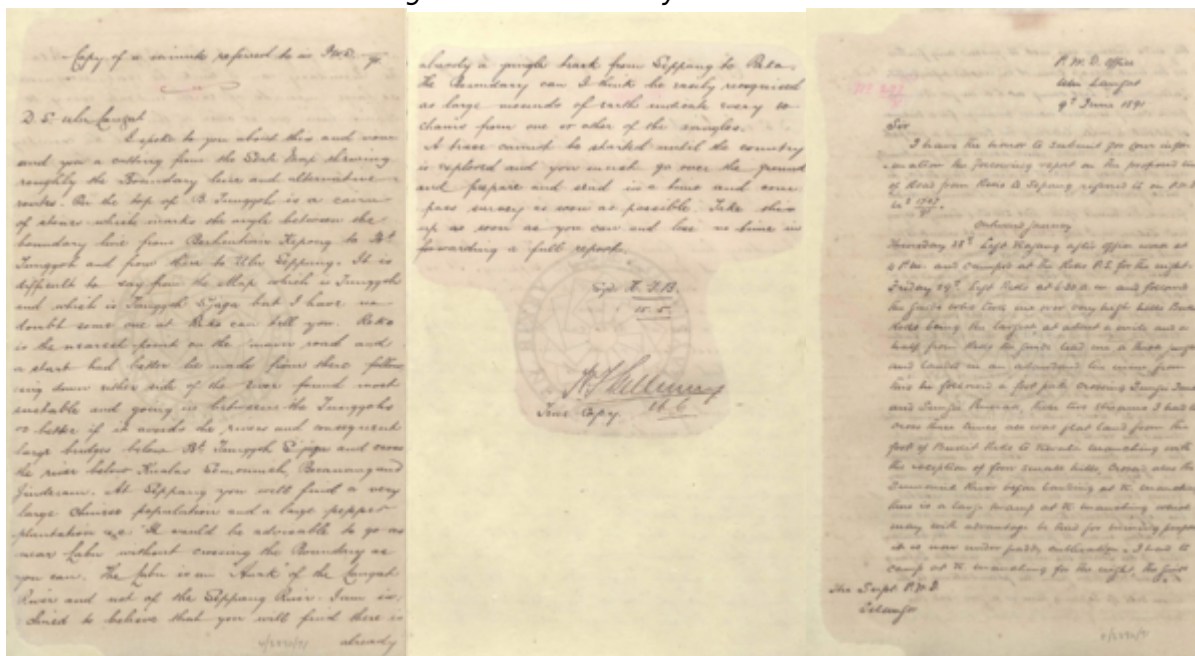 Copy of a minute referred to in
D. E. Ulu Langat
I spoke to you about this and now
send you a cutting from the State Map shewing
roughly the Boundary line and alternative
routes. On the top of B. Tunggoh is a cairn
of stones which marks the angle between the
boundary line from Perhentian Kepong to Bt
Tunggoh and from there to Ulu Sippang. It is
difficult to say from the Map which is Tunggoh
and which is Tunggoh S'jaga but I have no
doubt some one at Reko can tell you. Reko
is the nearest point on the main road and
a start had better be made from there follow
ing down either side of the River found most
suitable and going in between the Tunggohs
or better if it avoids the rivers and consequent
large bridges below Bt. Tunggoh S'jaga and cross
the river below Kualas Semonieh, Beranang and
Jinderam. At Sippang you will find a very
large chinese population and a large pepper
plantation &c. It would be adviseable to go as
near Labu without crossing the Boundary as
you can. The Labu is an "Anak" of the Langat
River and not of the Sippang River. I am in,
clined to believe that you will find there is
already
already a jungle track from Sippang to Reko.
The Boundary can I think be easily recognised
as large mounds of earth indicate every 10
chains from one or other of the angles.
A trace cannot be started until the country
is explored and you must go over the ground
and prepare and send in a time and com
pass survey as soon as possible. Take this
up as soon as you can and lose no time in
forwarding a full report.
Sgd. H. F. B.
15. 5.
True Copy.
P. W. D. Office
Ulu Langat
9th June 1891
Sir
I have the honor to submit for your infor
mation the following report on the proposed line
of Road from Reko to Sepang referred to in P.W.D
Outward journey
Thursday 28th Left Kajang after office work at
4 P.M. and camped at the Reko P.S. for the night.
Friday 29th Left Reko at 6.30 a.m and followed
the guide who took me over very high hills Bukit
Reko being the largest at about a mile and a
half from Reko the guide lead me a thro jungle
and landed in an abandoned tin mine from
this he followed a foot path crossing Sungei
and Sungei these two streams I had to
cross three times all was flat land from the
foot of Bukit Reko to Kuala Manching with
the exception of four small hills, Crossed also the
River before landing at K. Manching
there is a large swamp at K. Manching which
may with advantage be used for mining purposes
it is now under paddy cultivation. I had to
camp at K. Manching for the night, the first
The Supt. P.W.D
Selangor